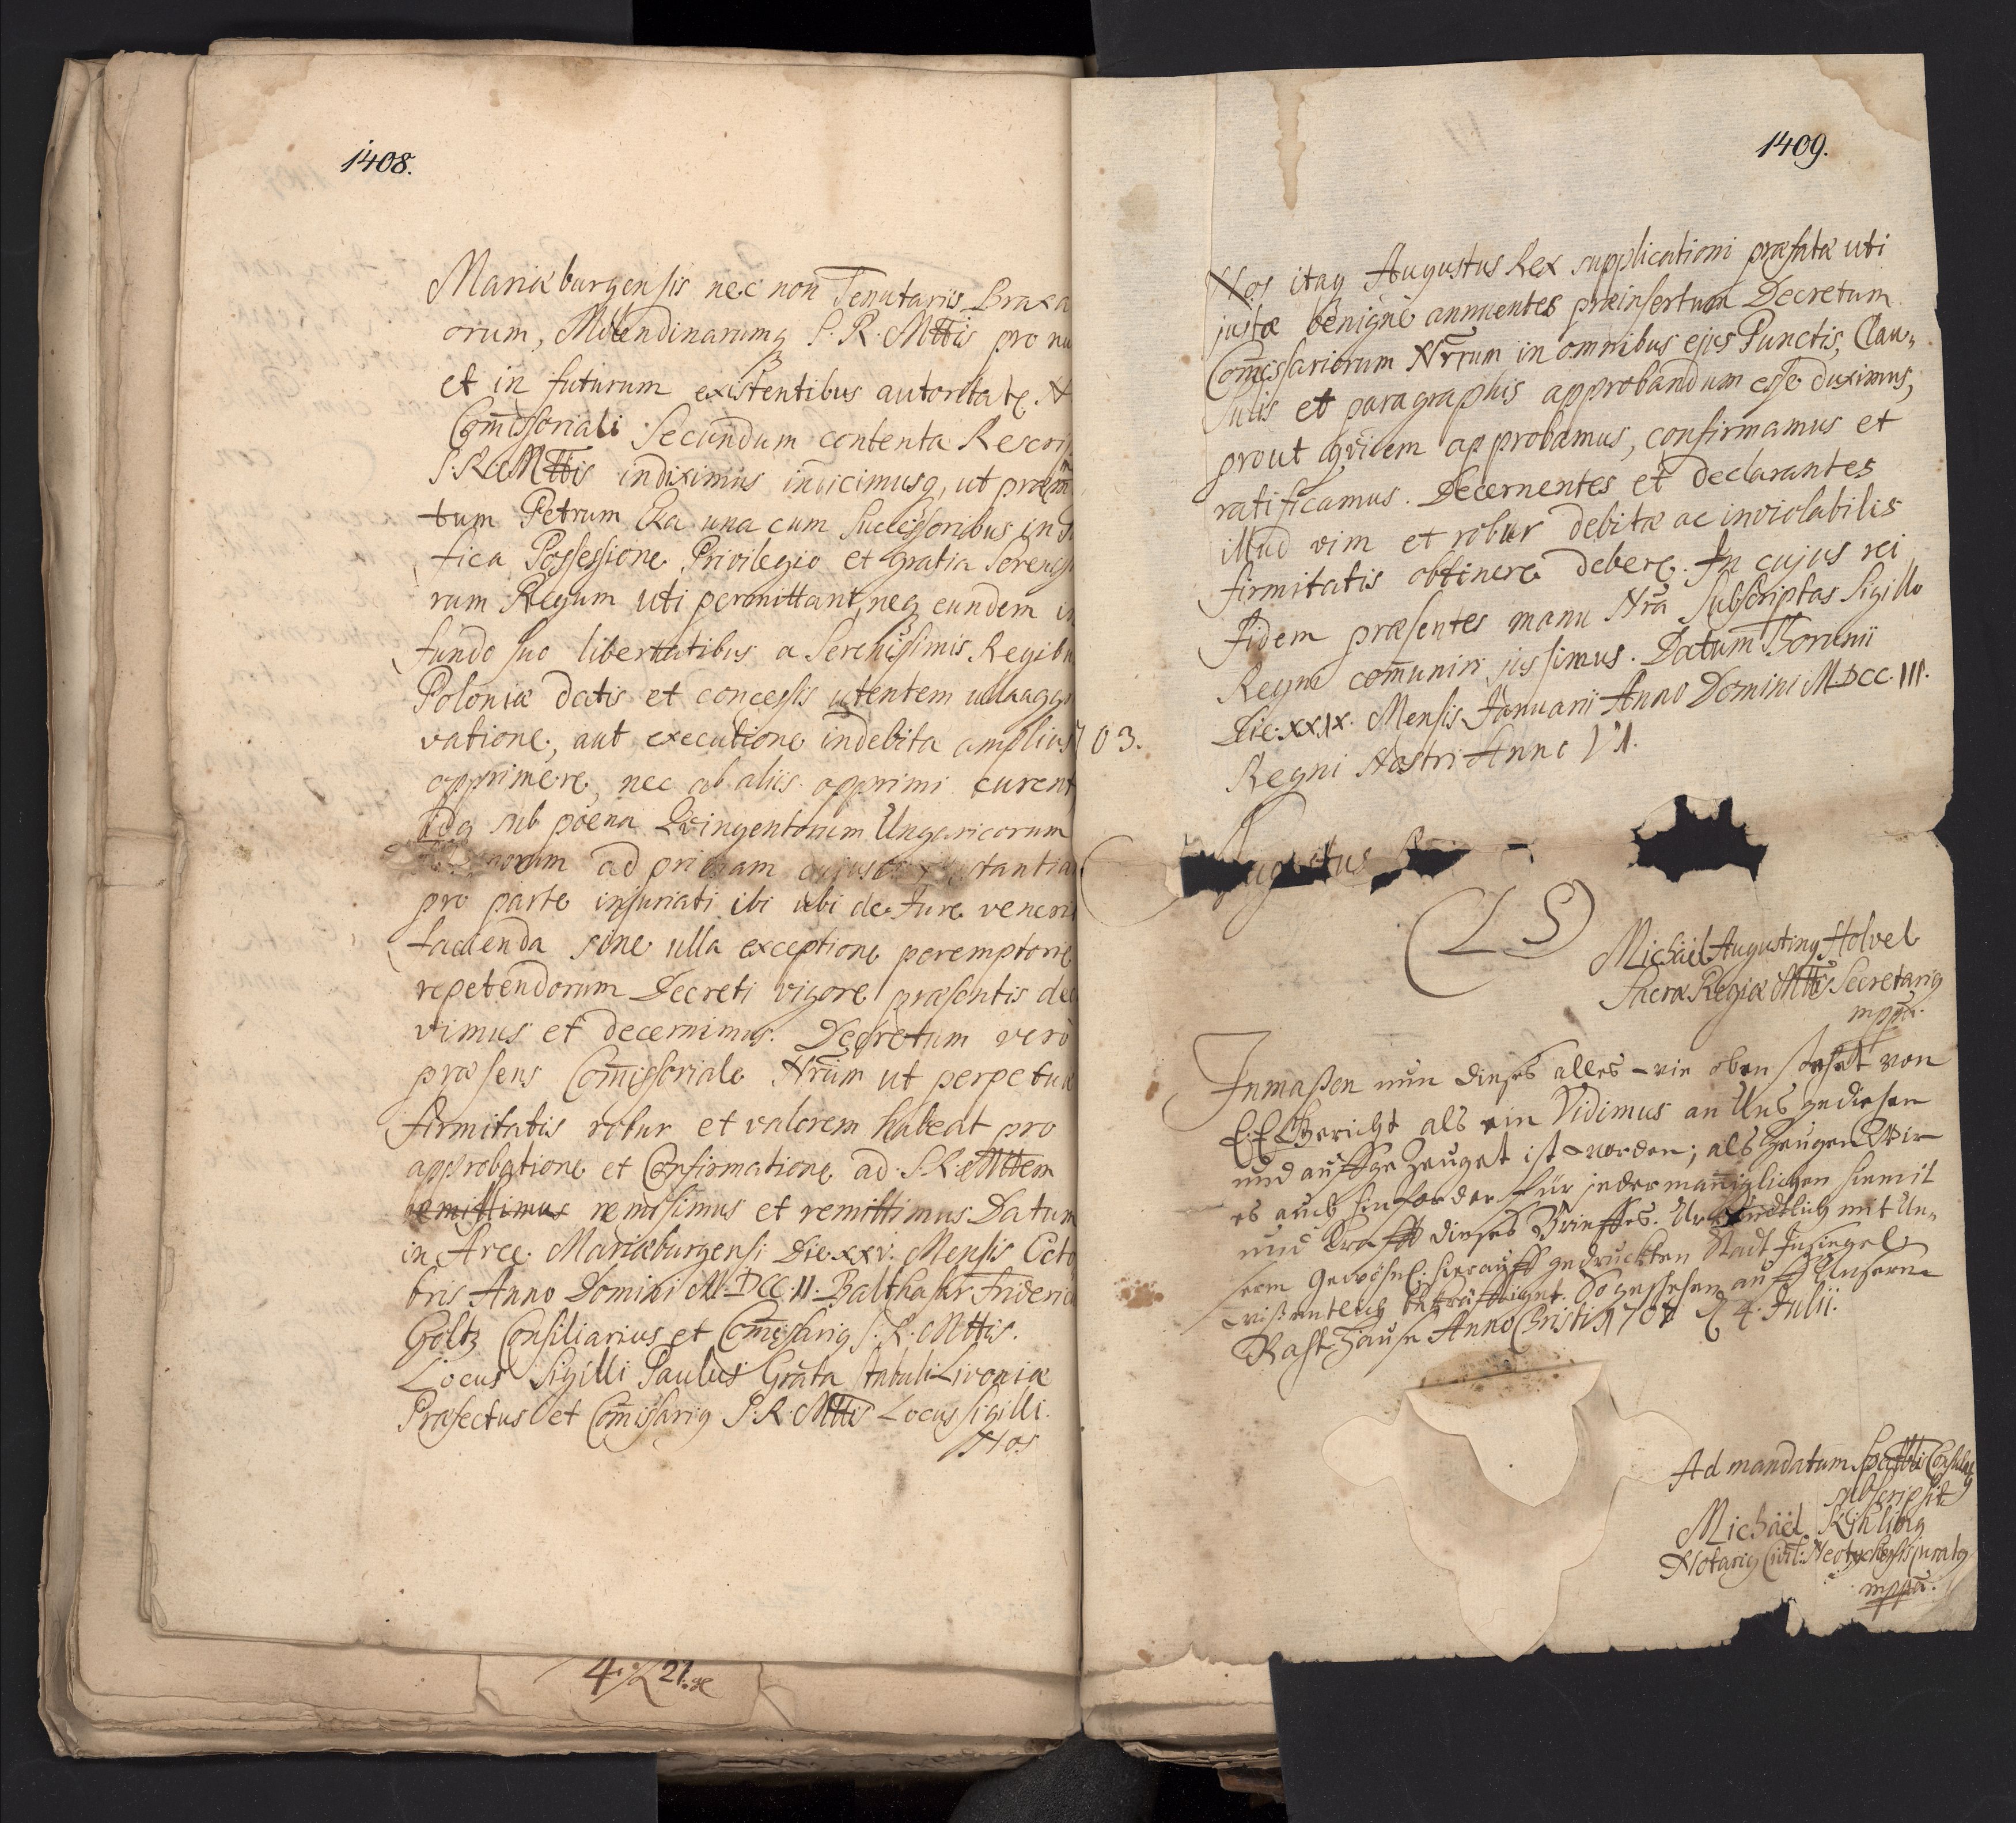 1408.
Mariæburgensis nec non Tenutariis Braxa
orum, Molendinarumq S. R. Mttis pro nu
et in futurum existentibus autoritate N
Com̄issoriali Secundum contenta Rescrip
S. R. Mttis indiximus indicimusq, ut præm̄
tum Petrum Eka una cum Successoribus in
fica Possessione Privilegio et Gratia Sereniss
rum Regum uti permittant, neq eundem in
fundo suo libertatibus a Serenissimis Regibu
Poloniæ datis et concessis utentem ulla aggr
vatione, aut executione indebita amplius
opprimere, nec ab aliis opprimi curent
Idq sub poena Qvingentorum Ungaricorum
ad primam cujusvis stantia
pro parte injuriati ibi ubi de Jure venerit
facienda sine ulla exceptione peremptorie
repetendorum Decreti vigore præsentis dec
vimus et decernimus. Decretum verò
præsens Com̄issoriale Nrūm ut perpetuæ
firmitatis robur et valorem habeat pro
approbatione et Confirmatione ad S.R. Mttem
remittimus remisimus et remittimus Datum
in Arce Mariæburgensi Die XXV. Mensis Octo
bris Anno Domini M.DCC.II. Balthasar Frideric
Goltz Consiliarius et Com̄issariq S. R. Mttis.
Locus Sigilli Paulus Grāta Stabuli Livoniæ
Præfectus et Com̄issariq S. R. Mttis Locus sigilli.
Nos
4. 21.
1409.
Nos itaq Augustus Rex supplicationi præfatæ uti
justæ benignè annuentes præinsertum Decretum
Com̄issariorum Nrr̄um in omnibus ejus Punctis, Clau„
sulis et paragraphis approbandum esse duximus,
prout qvidem approbamus, confirmamus et
ratificamus. Decernentes et declarantes
illud vim et robur debitæ ac inviolabilis
firmitatis obtinere debere. In cujus rei
Fidem præsentes manu Nrā Subscriptas Sigillo
Regni com̄uniri jussimus. Datum Thorunii
Die XXIX. Mensis Januarii Anno Domini M.DCC.III.
703.
Regni Nostri Anno VI.
Augustus
(LS)
Michäel Augustinq Holvel
Sacræ Regiæ Mttis Secretariq
mppā.
Inmaßen nun dieses alles wie oben stehet von
E. E. Gericht als ein Vidimus an Uns gediehen
und auffgezeuget ist worden; als zeugen Wir
es auch hinforder für jedermann̄iglichen hiemit
und Krafft dieses Brieffes. Urkundtlich mit Un„
serm Gewöhnl: hierauff gedruckten Stadt Insiegel
wißentlich bekräfftiget. So geschehen auff Unserm
Raht-Hause Anno Christi 1707 d. 4. Julii.
Ad mandatum Spectbli Consulatq
subscripsit
Michäel Kihlibg
Notariq Civit: Neotychensis juratq
mppā.